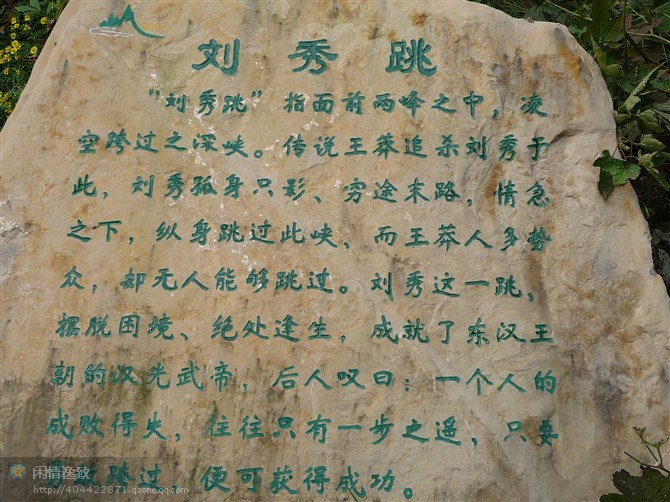 刘秀跳
“刘秀跳”指面前两峰之中，凌
空跨过之深峡。传说王莽追杀刘秀于
此，刘秀孤身只影、穷途末路，情急
之下，纵身跳过此峡、而王莽人多势
众，却无人能够跳过。刘秀这一跳，
摆脱困境、绝处逢生，成就了东汉王
朝的汉光武帝，后人叹曰：一个人的
成败得失，往往只有一步之遥，只要
跨过，便可获得成功。
闲情逸致
http://404422871.qzone.qq.com